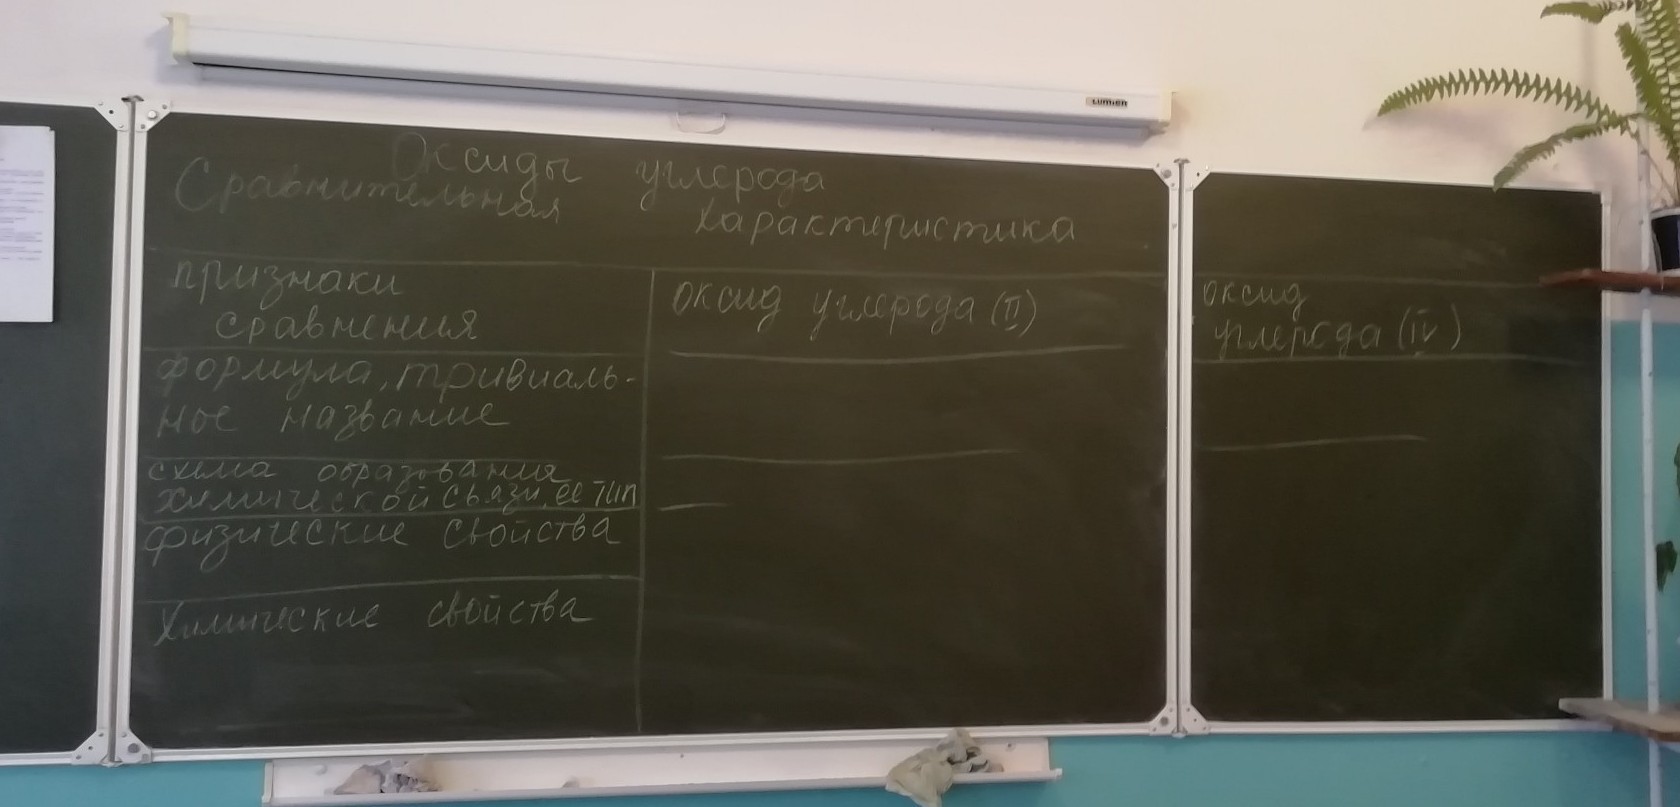 LUMIEN
Оксиды углерода
Сравнительная характеристика
признаки
сравнения
оксид углерода (II)
оксид
углерода (IV)
формула, тривиаль-
ное название
схема образования
химической связи, ее тип
физические свойства
Химические свойства